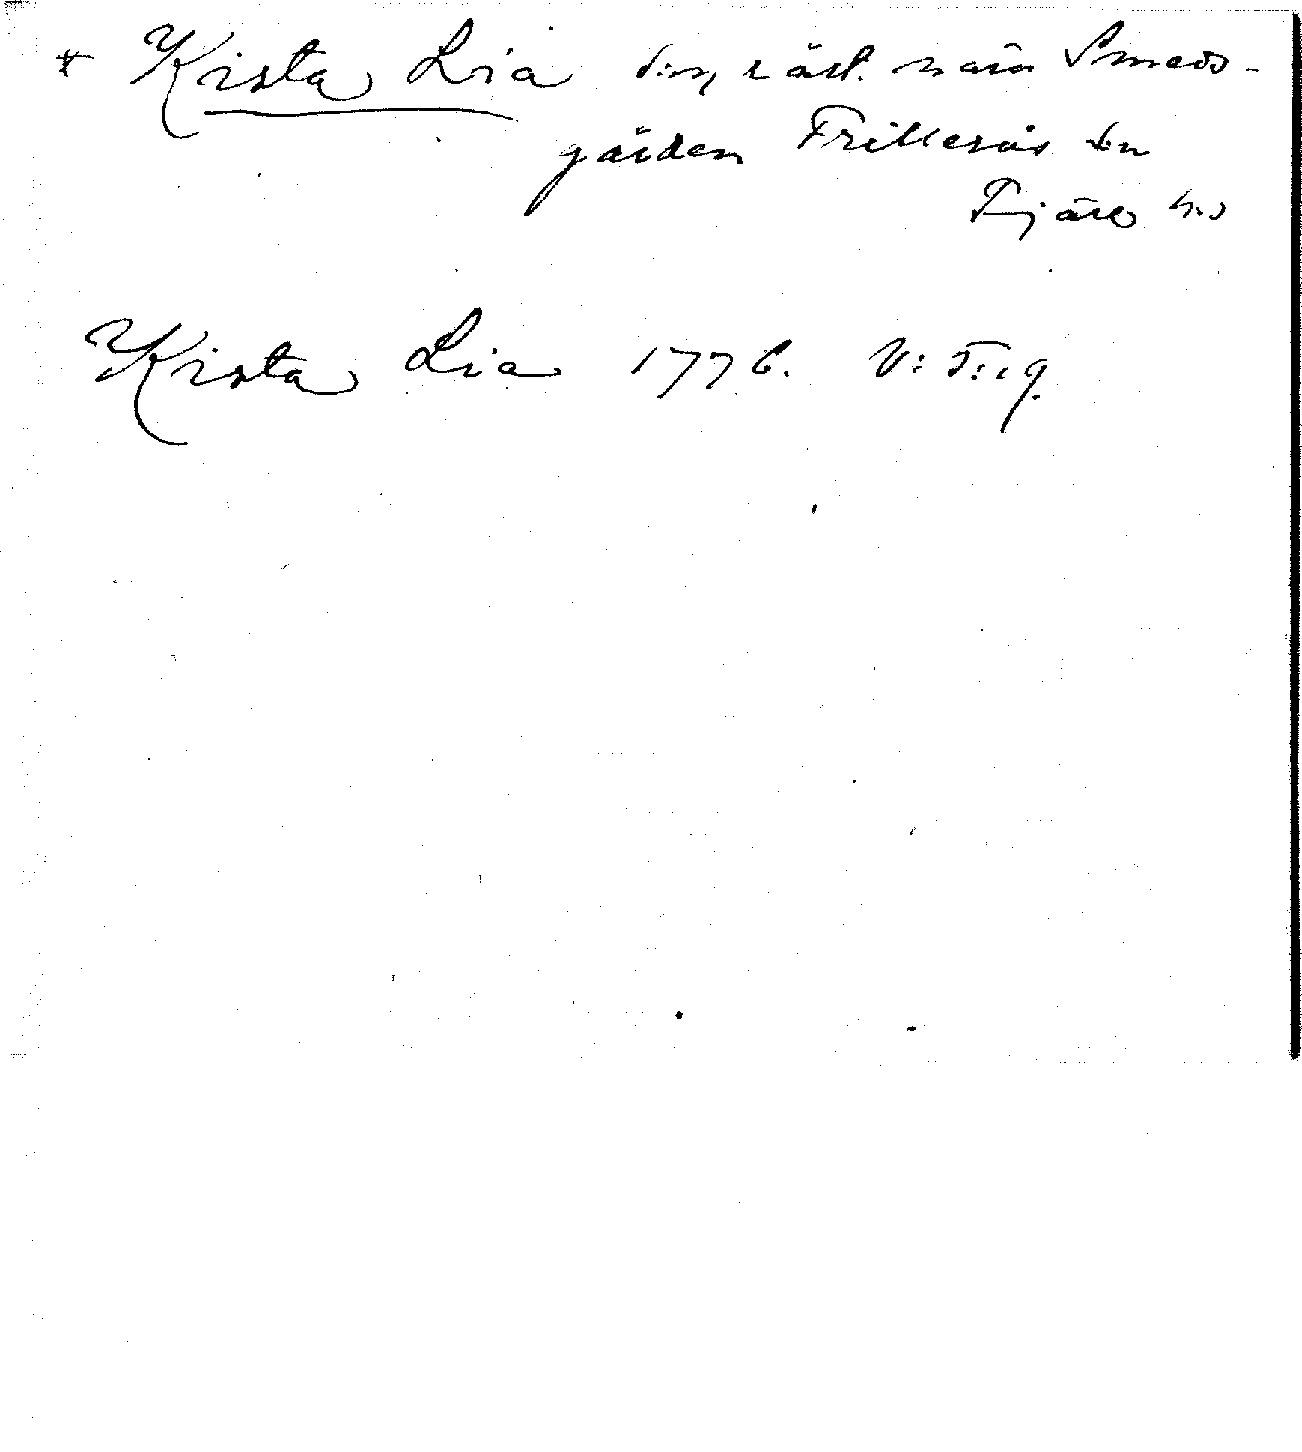 * Kista Lia sing, väst. nära Smeds-
gården Frillesås sn
Fjäre hd
Kista Lia 1776. V: F: 19.